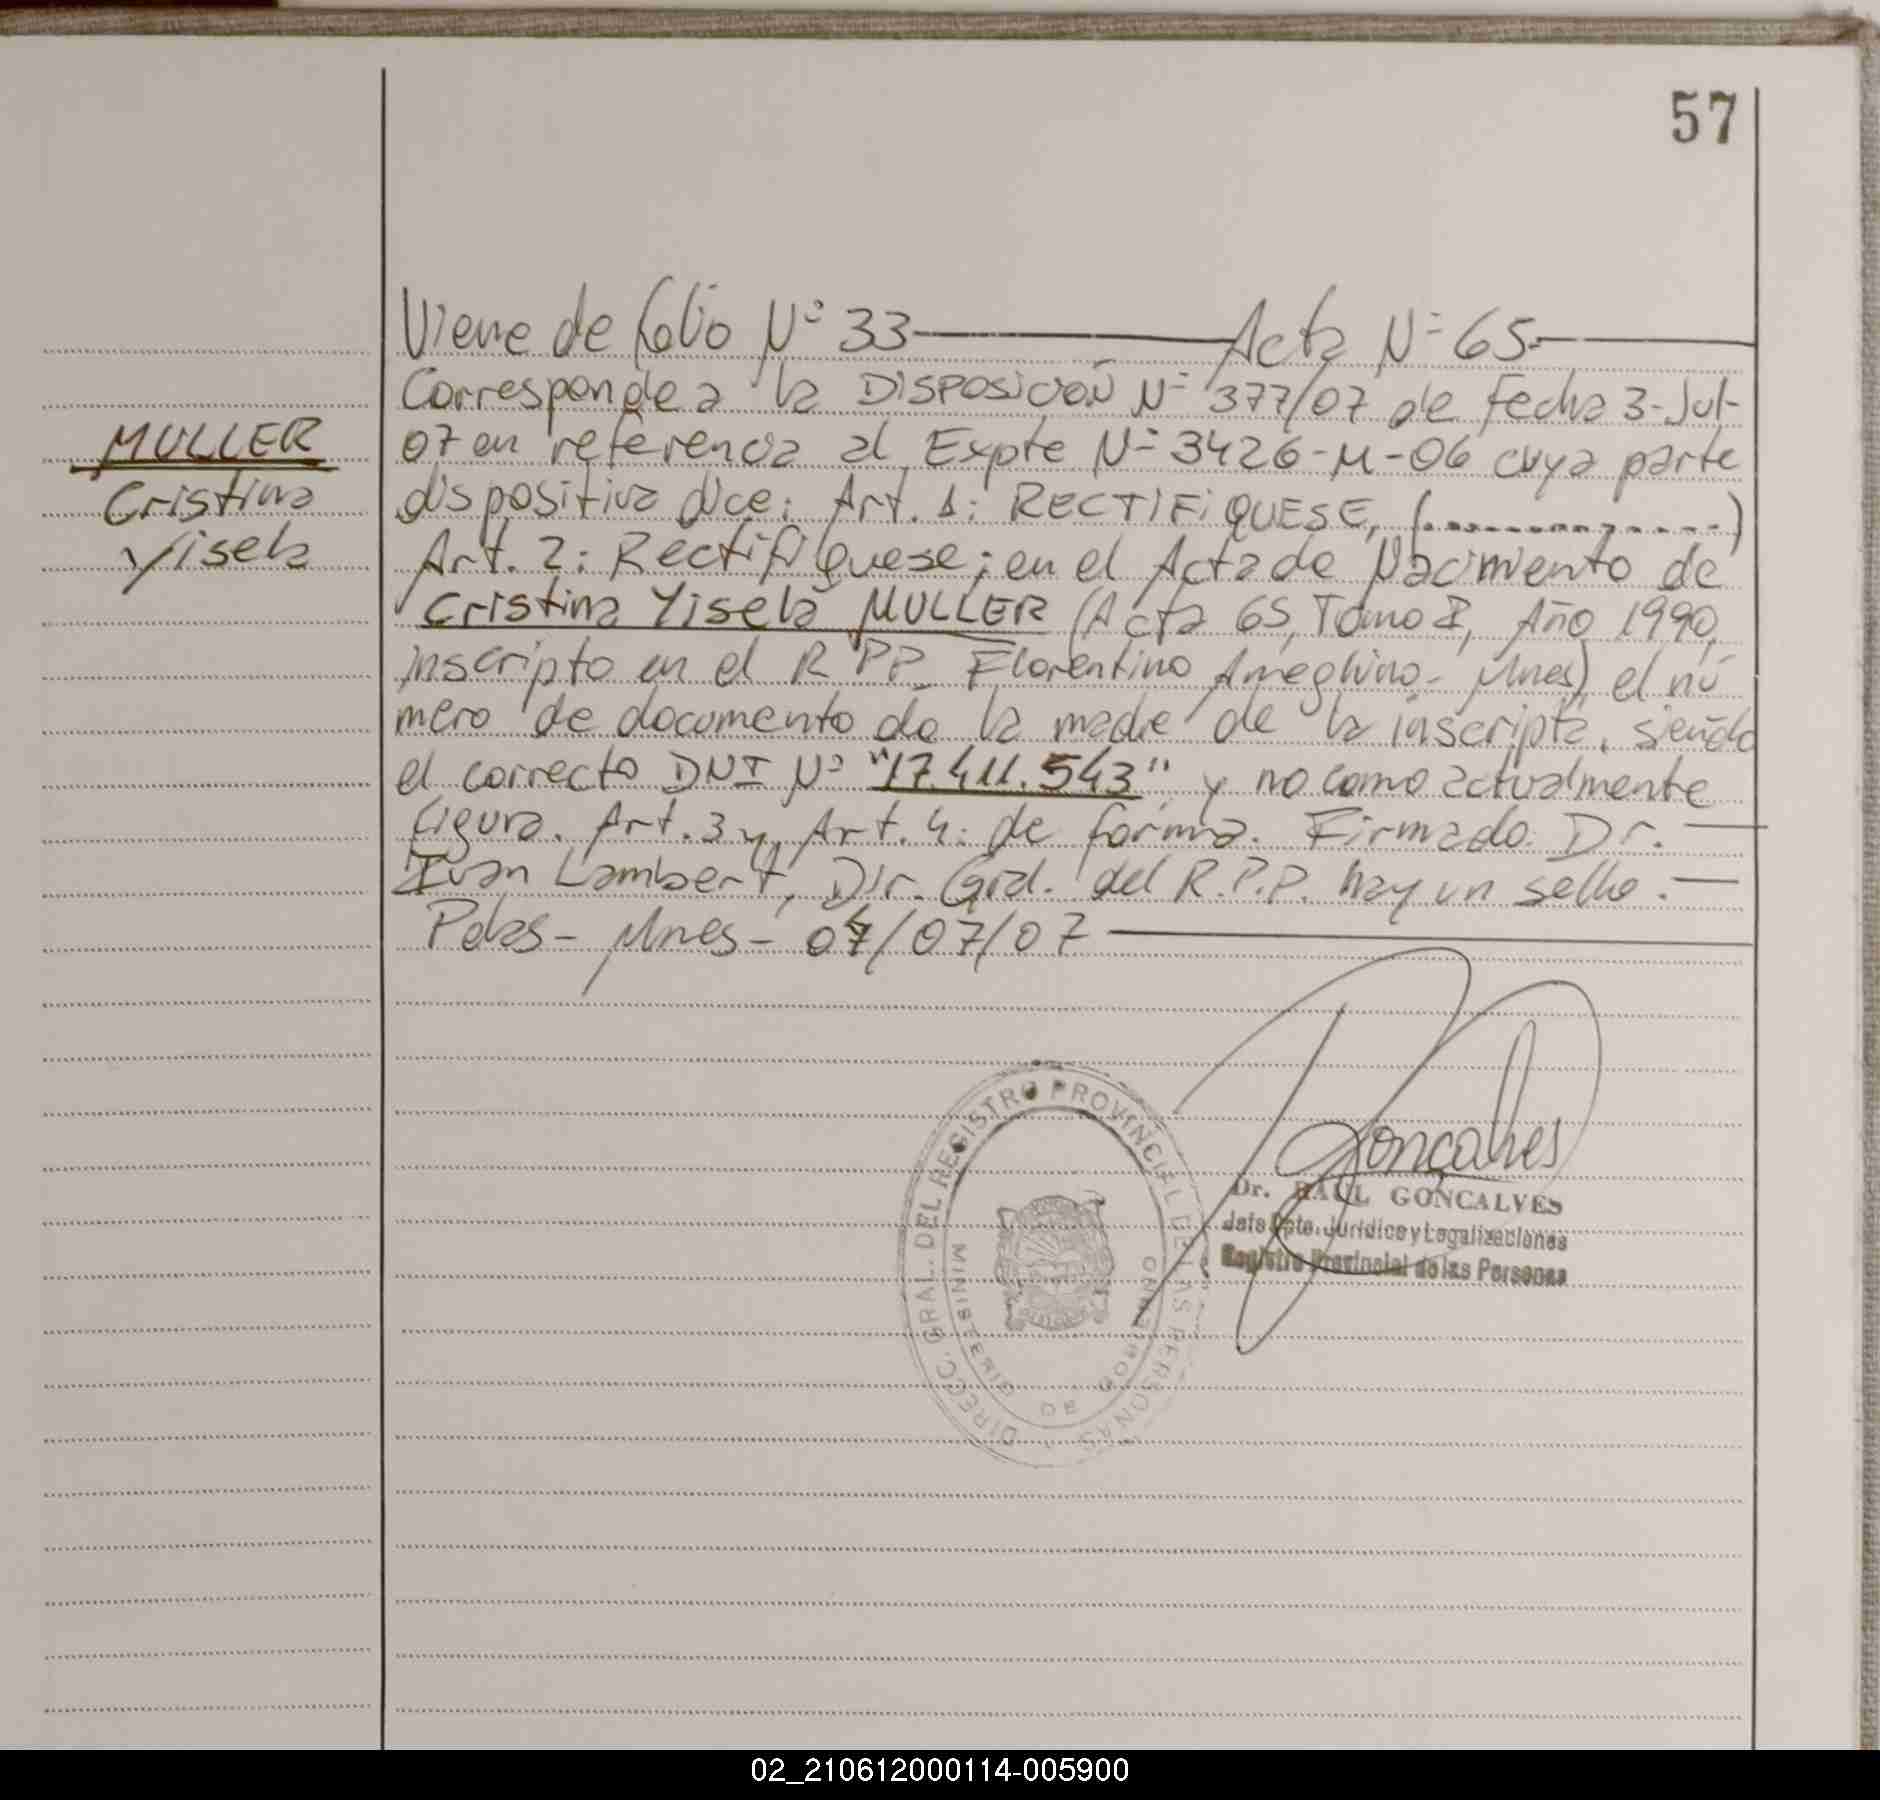 57
Viene de folio Nº 33 — Acta Nº 65.—
Corresponde a la DISPOSICIÓN Nº 377/07 de Fecha 3-Jul-
MULLER
07 en referencia al Expte Nº 3426-M-06 cuya parte
Cristina
dispositiva dice: Art. 1: RECTIFIQUESE, (..............)
Yisela
Art. 2: Rectifiquese; en el Acta de Nacimiento de
Cristina Yisela MULLER (Acta 65, Tomo I, Año 1990,
inscripto en el R PP. Florentino Ameghino - Mnes) el nú
mero de documento de la madre de la inscripta, siendo
el correcto DNI Nº "17.411.543", y no como actualmente
figura. Art. 3 y Art. 4: de forma. Firmado: Dr. —
Ivan Lambert, Dir. Gral. del R.P.P. hay un sello. —
Pdas - Mnes - 04/07/07 —
Gonçalves
Dr. RAUL GONÇALVES
Jefe Dpto. Jurídico y Legalizaciones
Registro Provincial de las Personas
DIRECC. GRAL. DEL REGISTRO PROVINCIAL DE LAS PERSONAS
MINISTERIO DE GOBIERNO
02_210612000114-005900